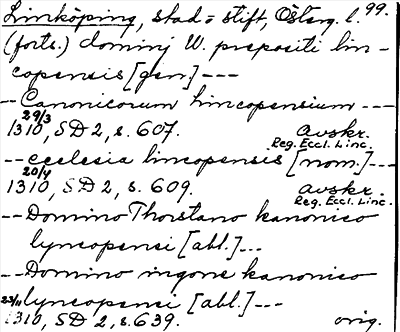 Linköping, stad = stift, Österg. l. 99.
(forts.) dominj W. prepositi lin-
copensis [gen.] ---
-- Canonicorum lincopensium ---
29/3
1310, SD 2, s. 607. avskr.
Reg. Eccl. Linc.
-- ecclesia lincopensis [nom.] ---
20/4
1310, SD 2, s. 609. avskr.
Reg. Eccl. Linc.
-- Domino Thorstano kanonico
lyncopensi [abl.] ---
-- Domino ingone kanonico
lyncopensi [abl.] ---
23/11
1310, SD 2, s. 639. orig.